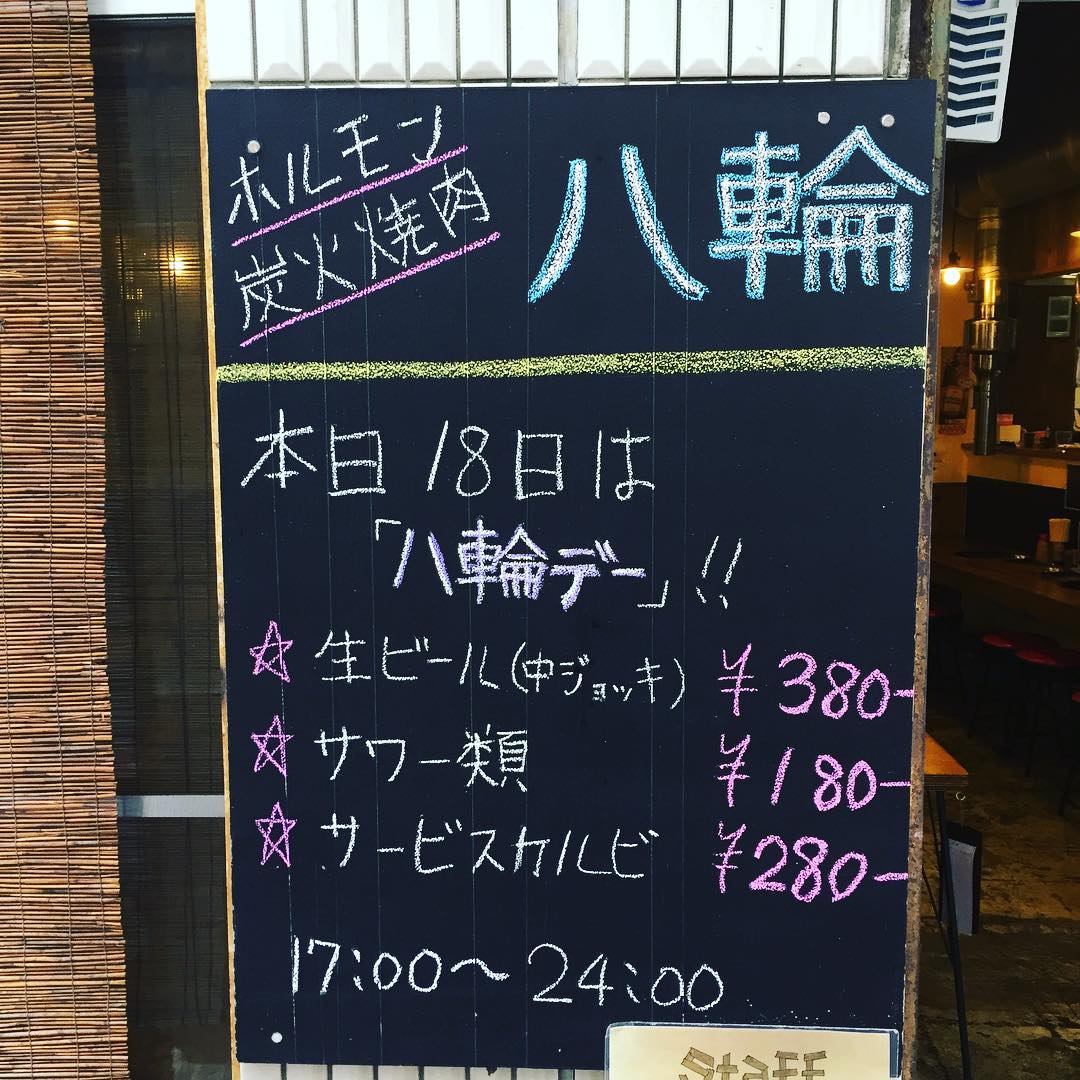 ホルモン
炭火焼肉
八輪
本日18日は
「八輪デー」!!
☆ 生ビール(中ジョッキ) ¥380-
☆ サワー類 ¥180-
☆ サービスカルビ ¥280-
17:00〜24:00
Staff